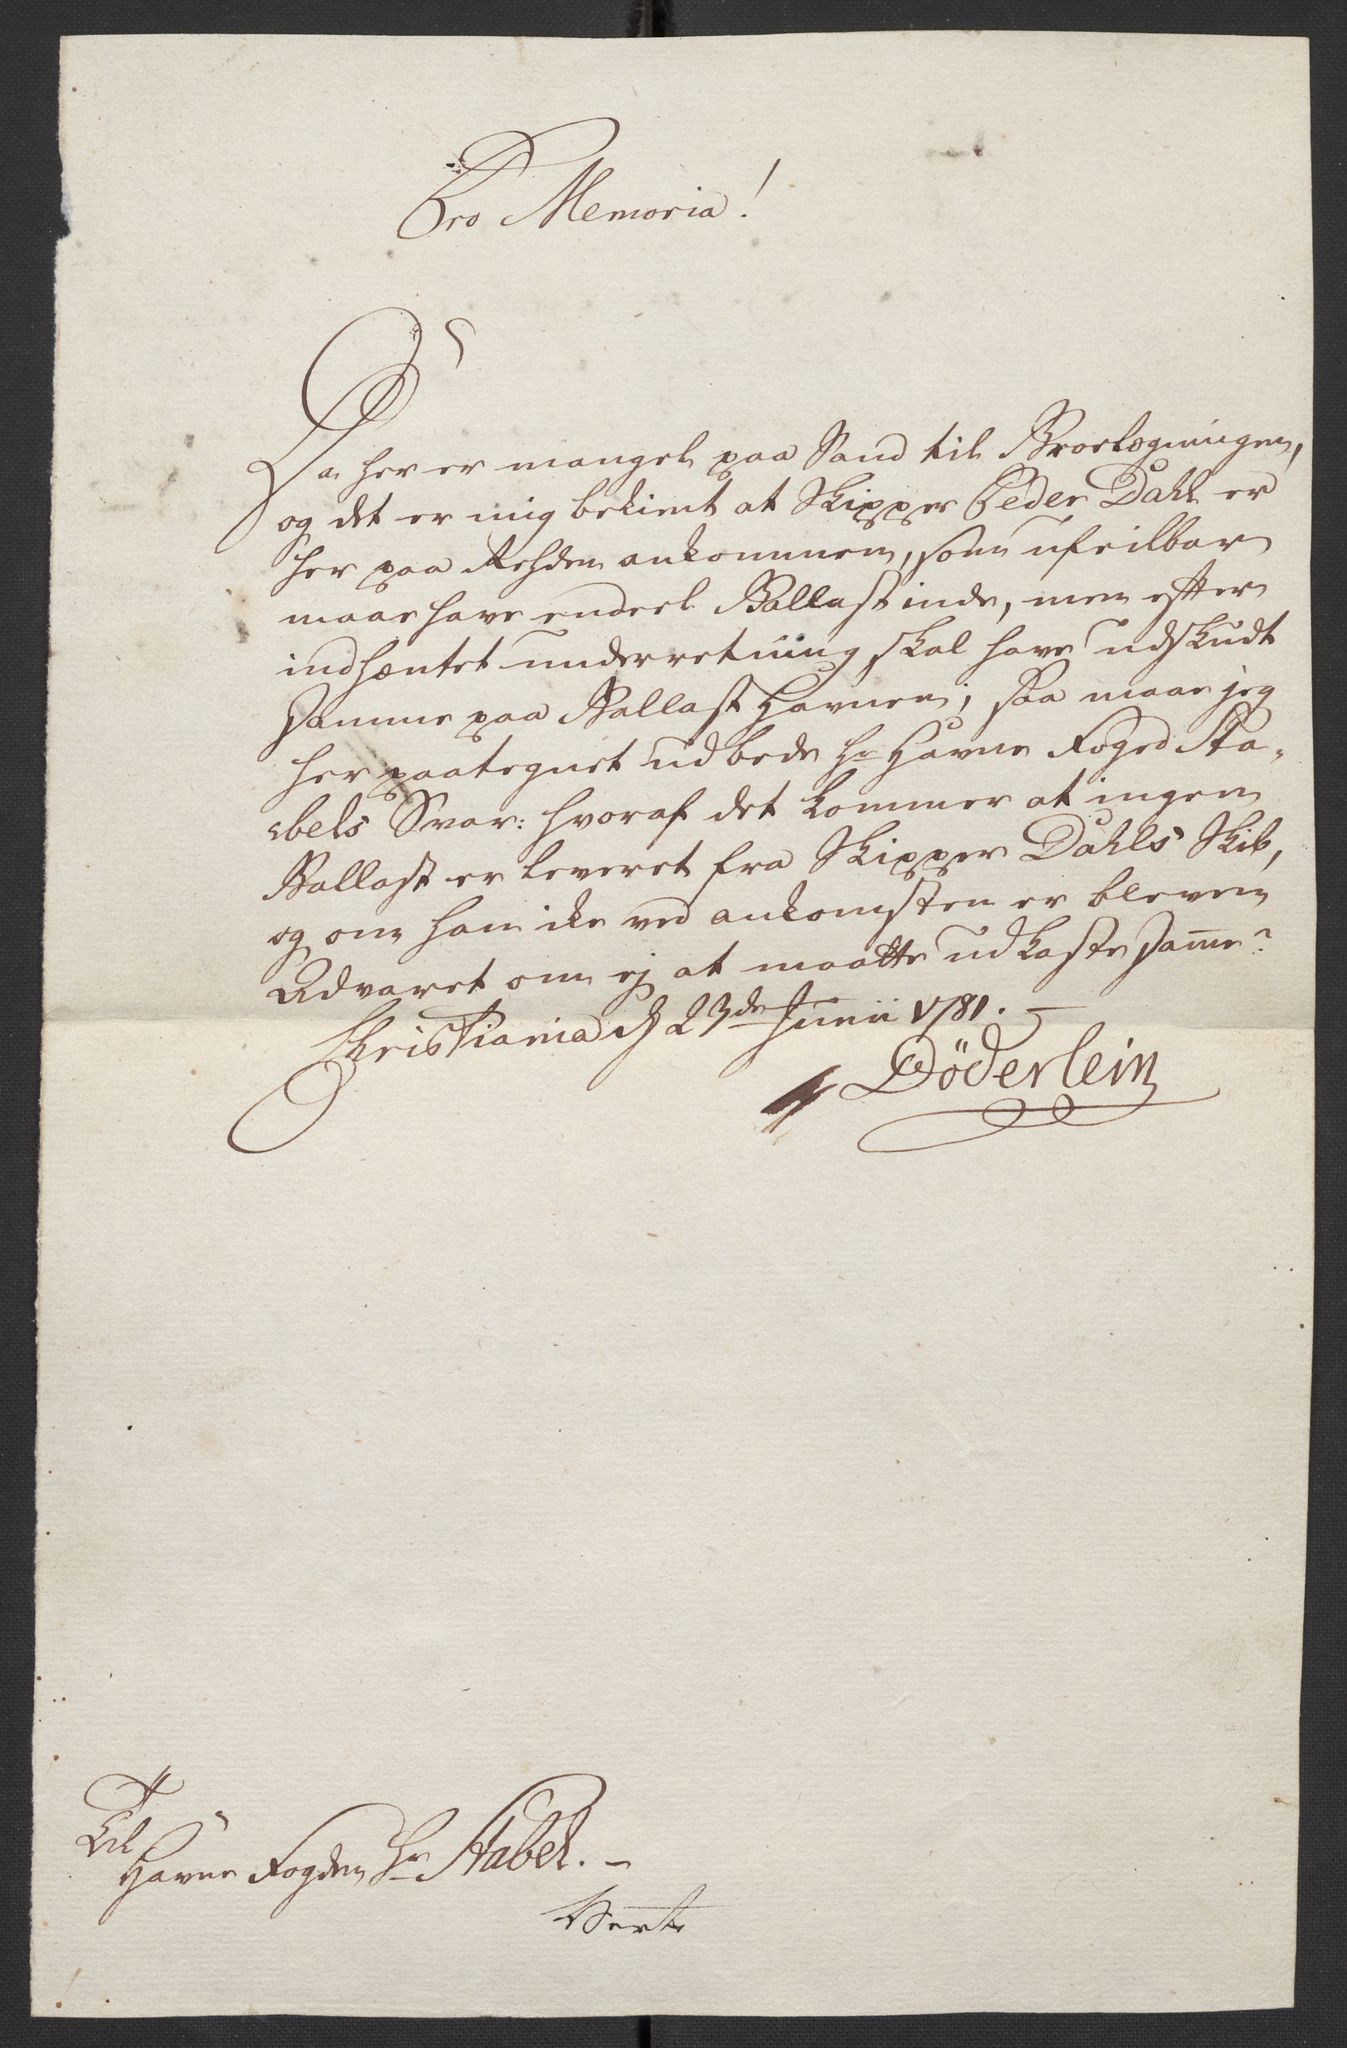 Pro Memoria!
Da her er mangel paa Sand til Broelægningen,
og det er mig bekient at Skipper Peder Dahl er
her paa Rehden ankommen, som ufeilbar
maae have endeel Ballast inde, men efter
indhæntet underretning skal have udskudt
samme paa Ballast Havnen; saa maae jeg
her paategnet udbede hr Havne Foged Sta-
bels Svar: hvoraf det kommer at ingen
Ballast er leveret fra Skipper Dahls Skib,
og om han ike ved ankomsten er bleven
Advaret om ej at maatte udkaste samme?
Christiania d 23de Junii 1781.
Döderlein
Til
Havne Fogden Hr Stabel. -
Verte